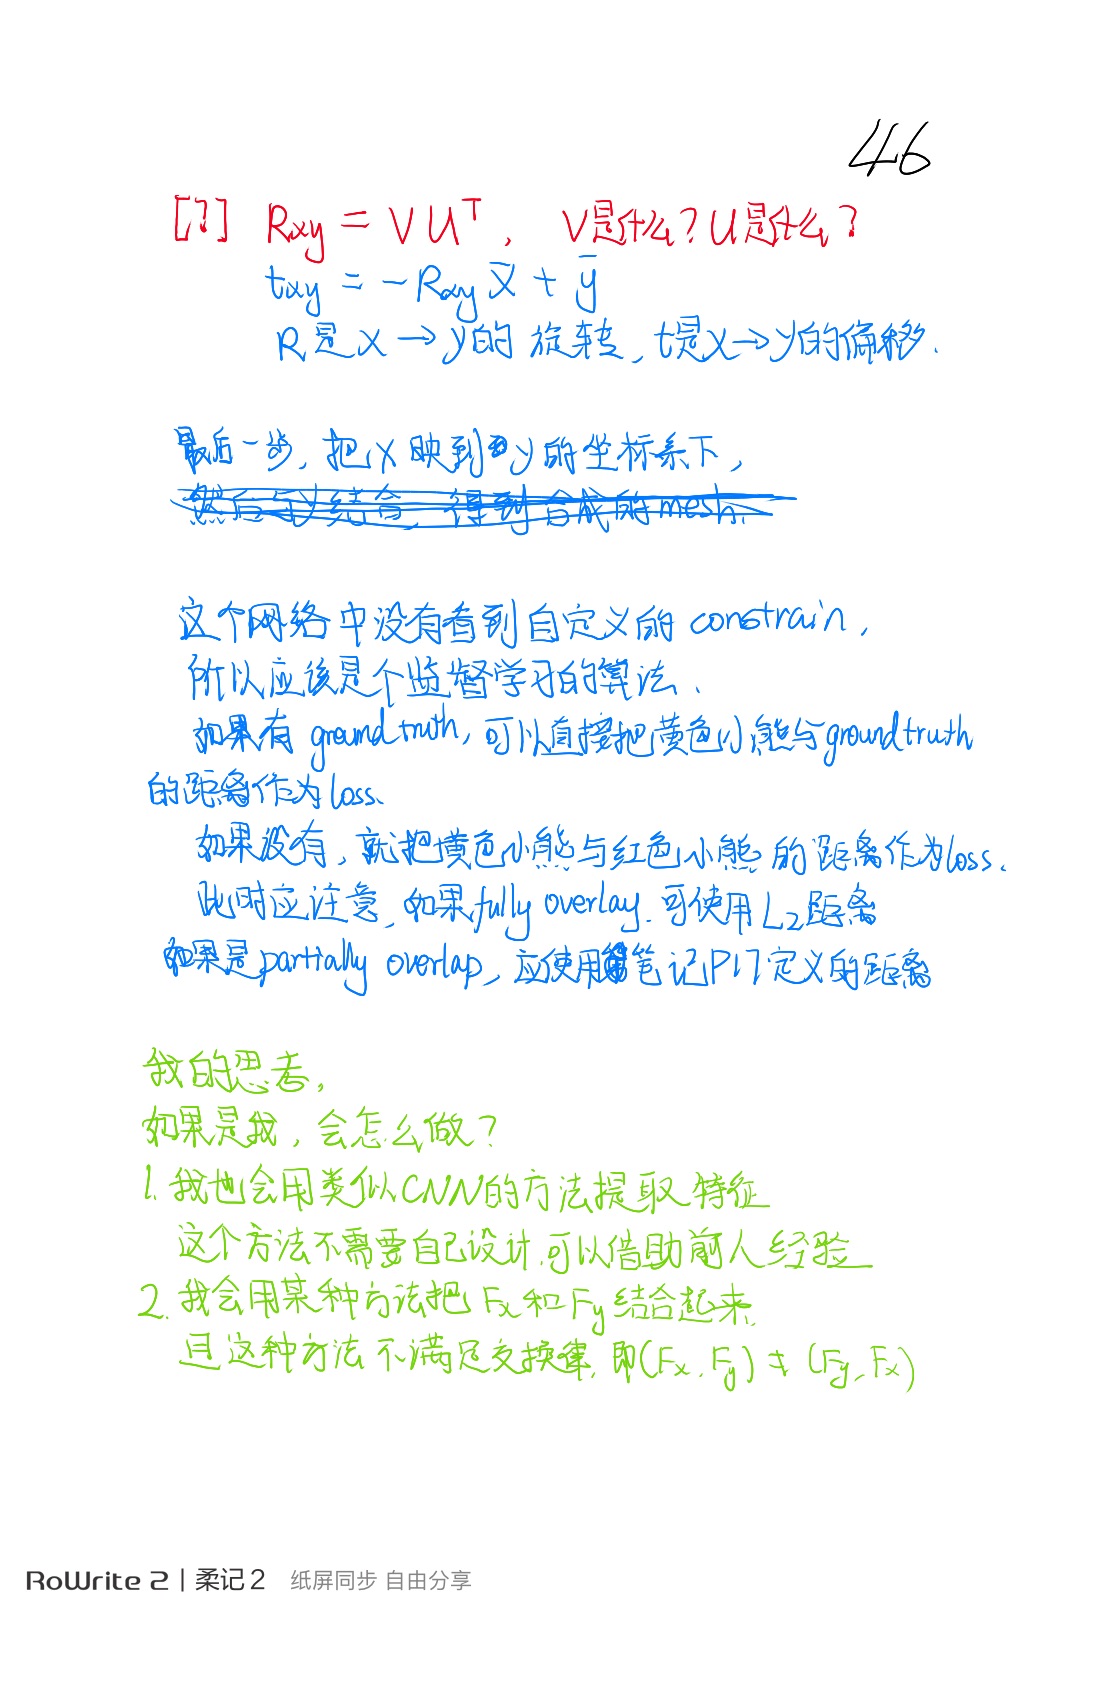 46
[?] Rxy = VUᵀ, V是什么?U是什么?
txy = -Rxy x̄ + ȳ
R是x→y的旋转,t是x→y的偏移.
最后一步,把x映到y的坐标系下,
然后与y结合,得到合成的mesh.
这个网络中没有看到自定义的constrain,
所以应该是个监督学习的算法.
如果有groundtruth,可以直接把黄色小熊与groundtruth
的距离作为loss.
如果没有,就把黄色小熊与红色小熊的距离作为loss.
此时应注意,如果fully overlay.可使用L2距离
如果是partially overlap,应使用笔记P17定义的距离
我的思考,
如果是我,会怎么做?
1.我也会用类似CNN的方法提取特征
这个方法不需要自己设计,可以借助前人经验
2.我会用某种方法把Fx和Fy结合起来.
且这种方法不满足交换律,即(Fx,Fy)≠(Fy,Fx)
RoWrite 2 | 柔记2 纸屏同步 自由分享